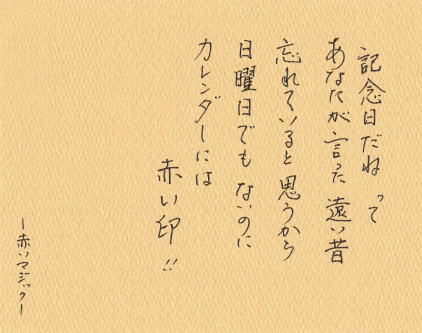 記念日だね って
あなたが言った 遠い昔
忘れていると思うから
日曜日でも ないのに
カレンダーには
赤い印!!
ー赤いマジックー